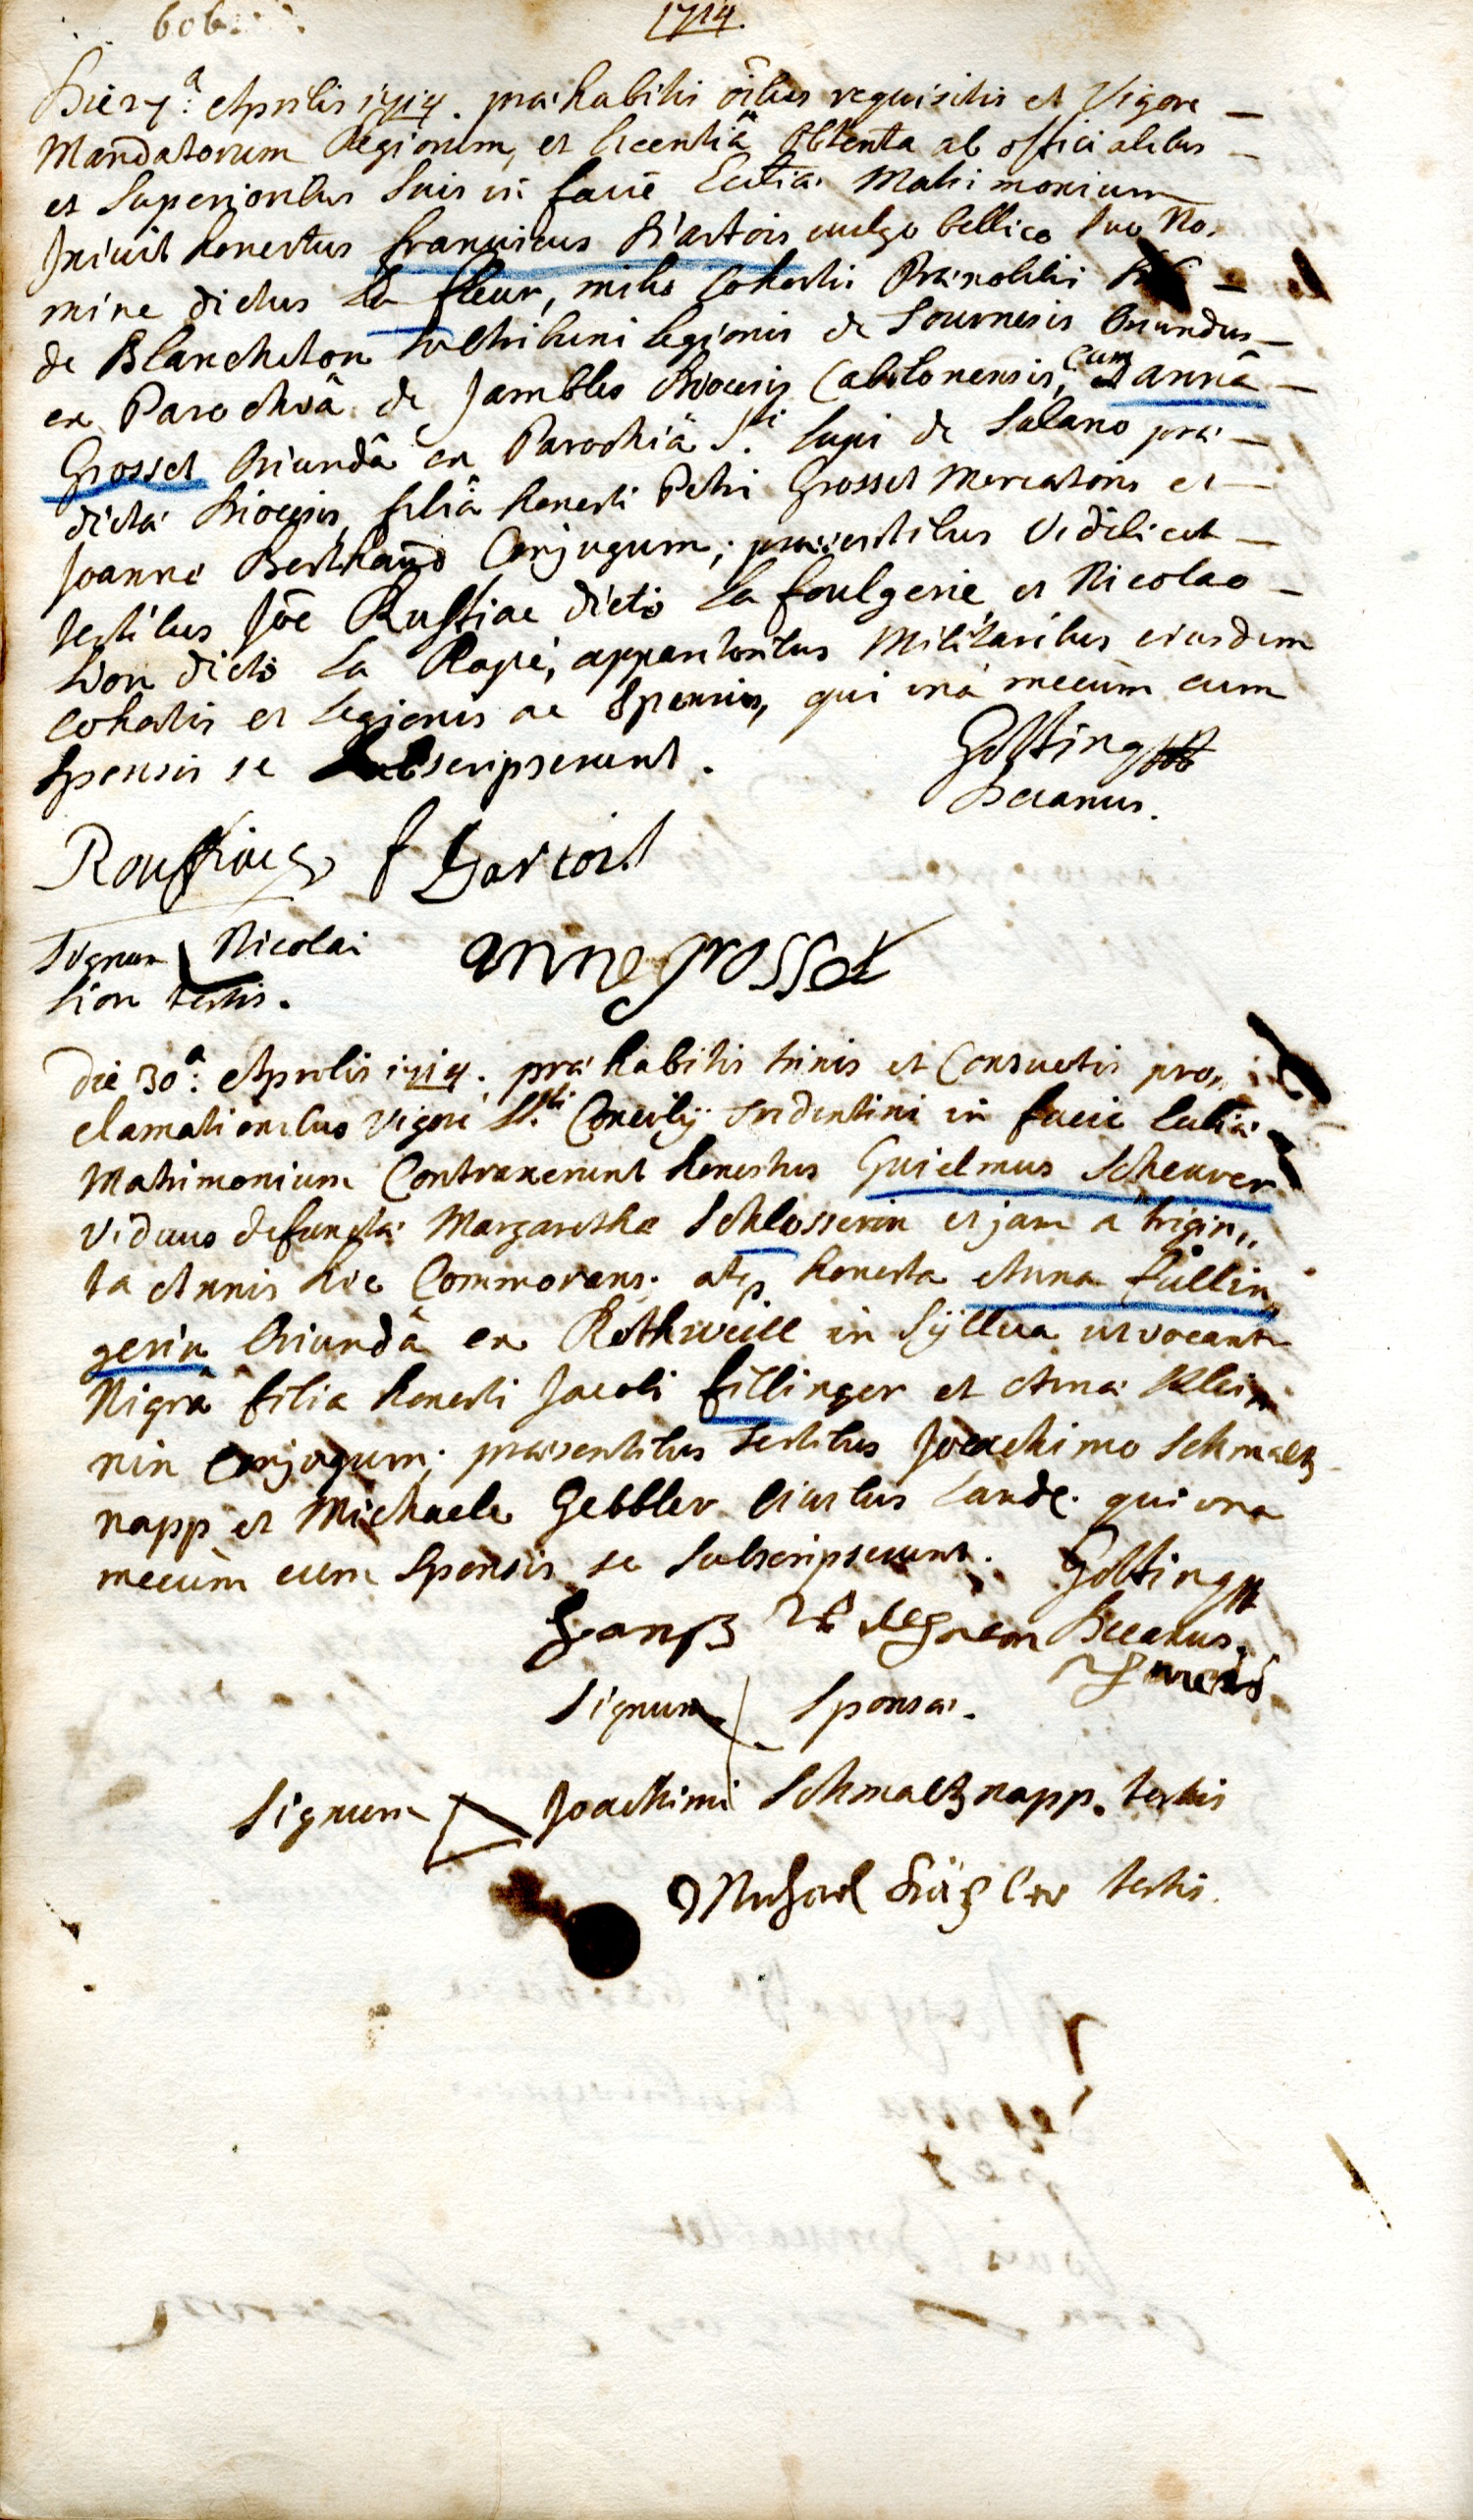 606.
1714.
Die 27.a Aprilis 1714. præhabitis õibus requisitis et Vigore
Mandatorum Regiorum, et licentiâ Obtenta ab officialibus
et Superioribus suis in faciē Ecclīæ Matrimonium
Inivit honestus franciscus D'artois vulgo bellico suo No,
mine dictus la fleur, miles Cohortis Prænobilis
de Blancheton Locitribuni legionis de Tournesis Oriundus
ex Parochiâ de Jambles Diocesis Cabilonensis, cum annâ
Grosset Oriundâ ex Parochiâ S.ti Lupi de Salano præ-
dictæ Diocesis, filiâ honesti Petri Grosset Mercatoris et
Joannæ Berthaud Conjugum; præsentibus Videlicet
testibus Joē Ruffiac dicto la foulgerie et Nicolao
Lion dicto la Rapé, apparitoribus Militaribus eiusdem
Cohortis et Legionis ac Sponsis, qui unà mecùm cum
Sponsis se subscripserunt.
Goltting
Decanus.
Rouffiac f Dartoist
Signum Nicolai
Lion testis.
anne grosset
Die 30.a Aprilis 1714. præhabitis trinis et Consuetis pro,,
clamationibus vigore S.ti Concilij Tridentini in facie Ecclīæ
Matrimonium Contraxerunt honestus Guielmus Scheurer
Viduus defunctæ Margarethæ Schlosserin et jam a trigin,,
ta Annis hic Commorans; atq honesta Anna fullin,,
gerin Oriundâ ex Rothweill in Syllva ut vocant
Nigrâ filia honesti Jacobi fillinger et Annæ Klei,,
nin Conjugum; præsentibus testibus Joachimo Schmaltz
napp et Michaele Gebbler Civibus Landc. qui una
mecùm cum Sponsis se subscripserunt. Goltting
Decanus.
Signum Sponsæ.
Signum Joachimi Schmaltznapp. testis
Michael testis.